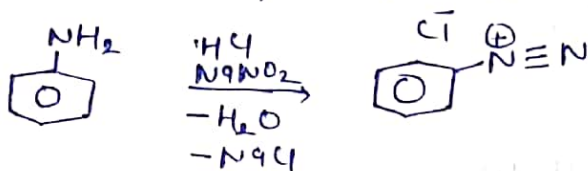 NH2
HCl
NaNO2
-H2O
-NaCl
Cl-
N+≡N